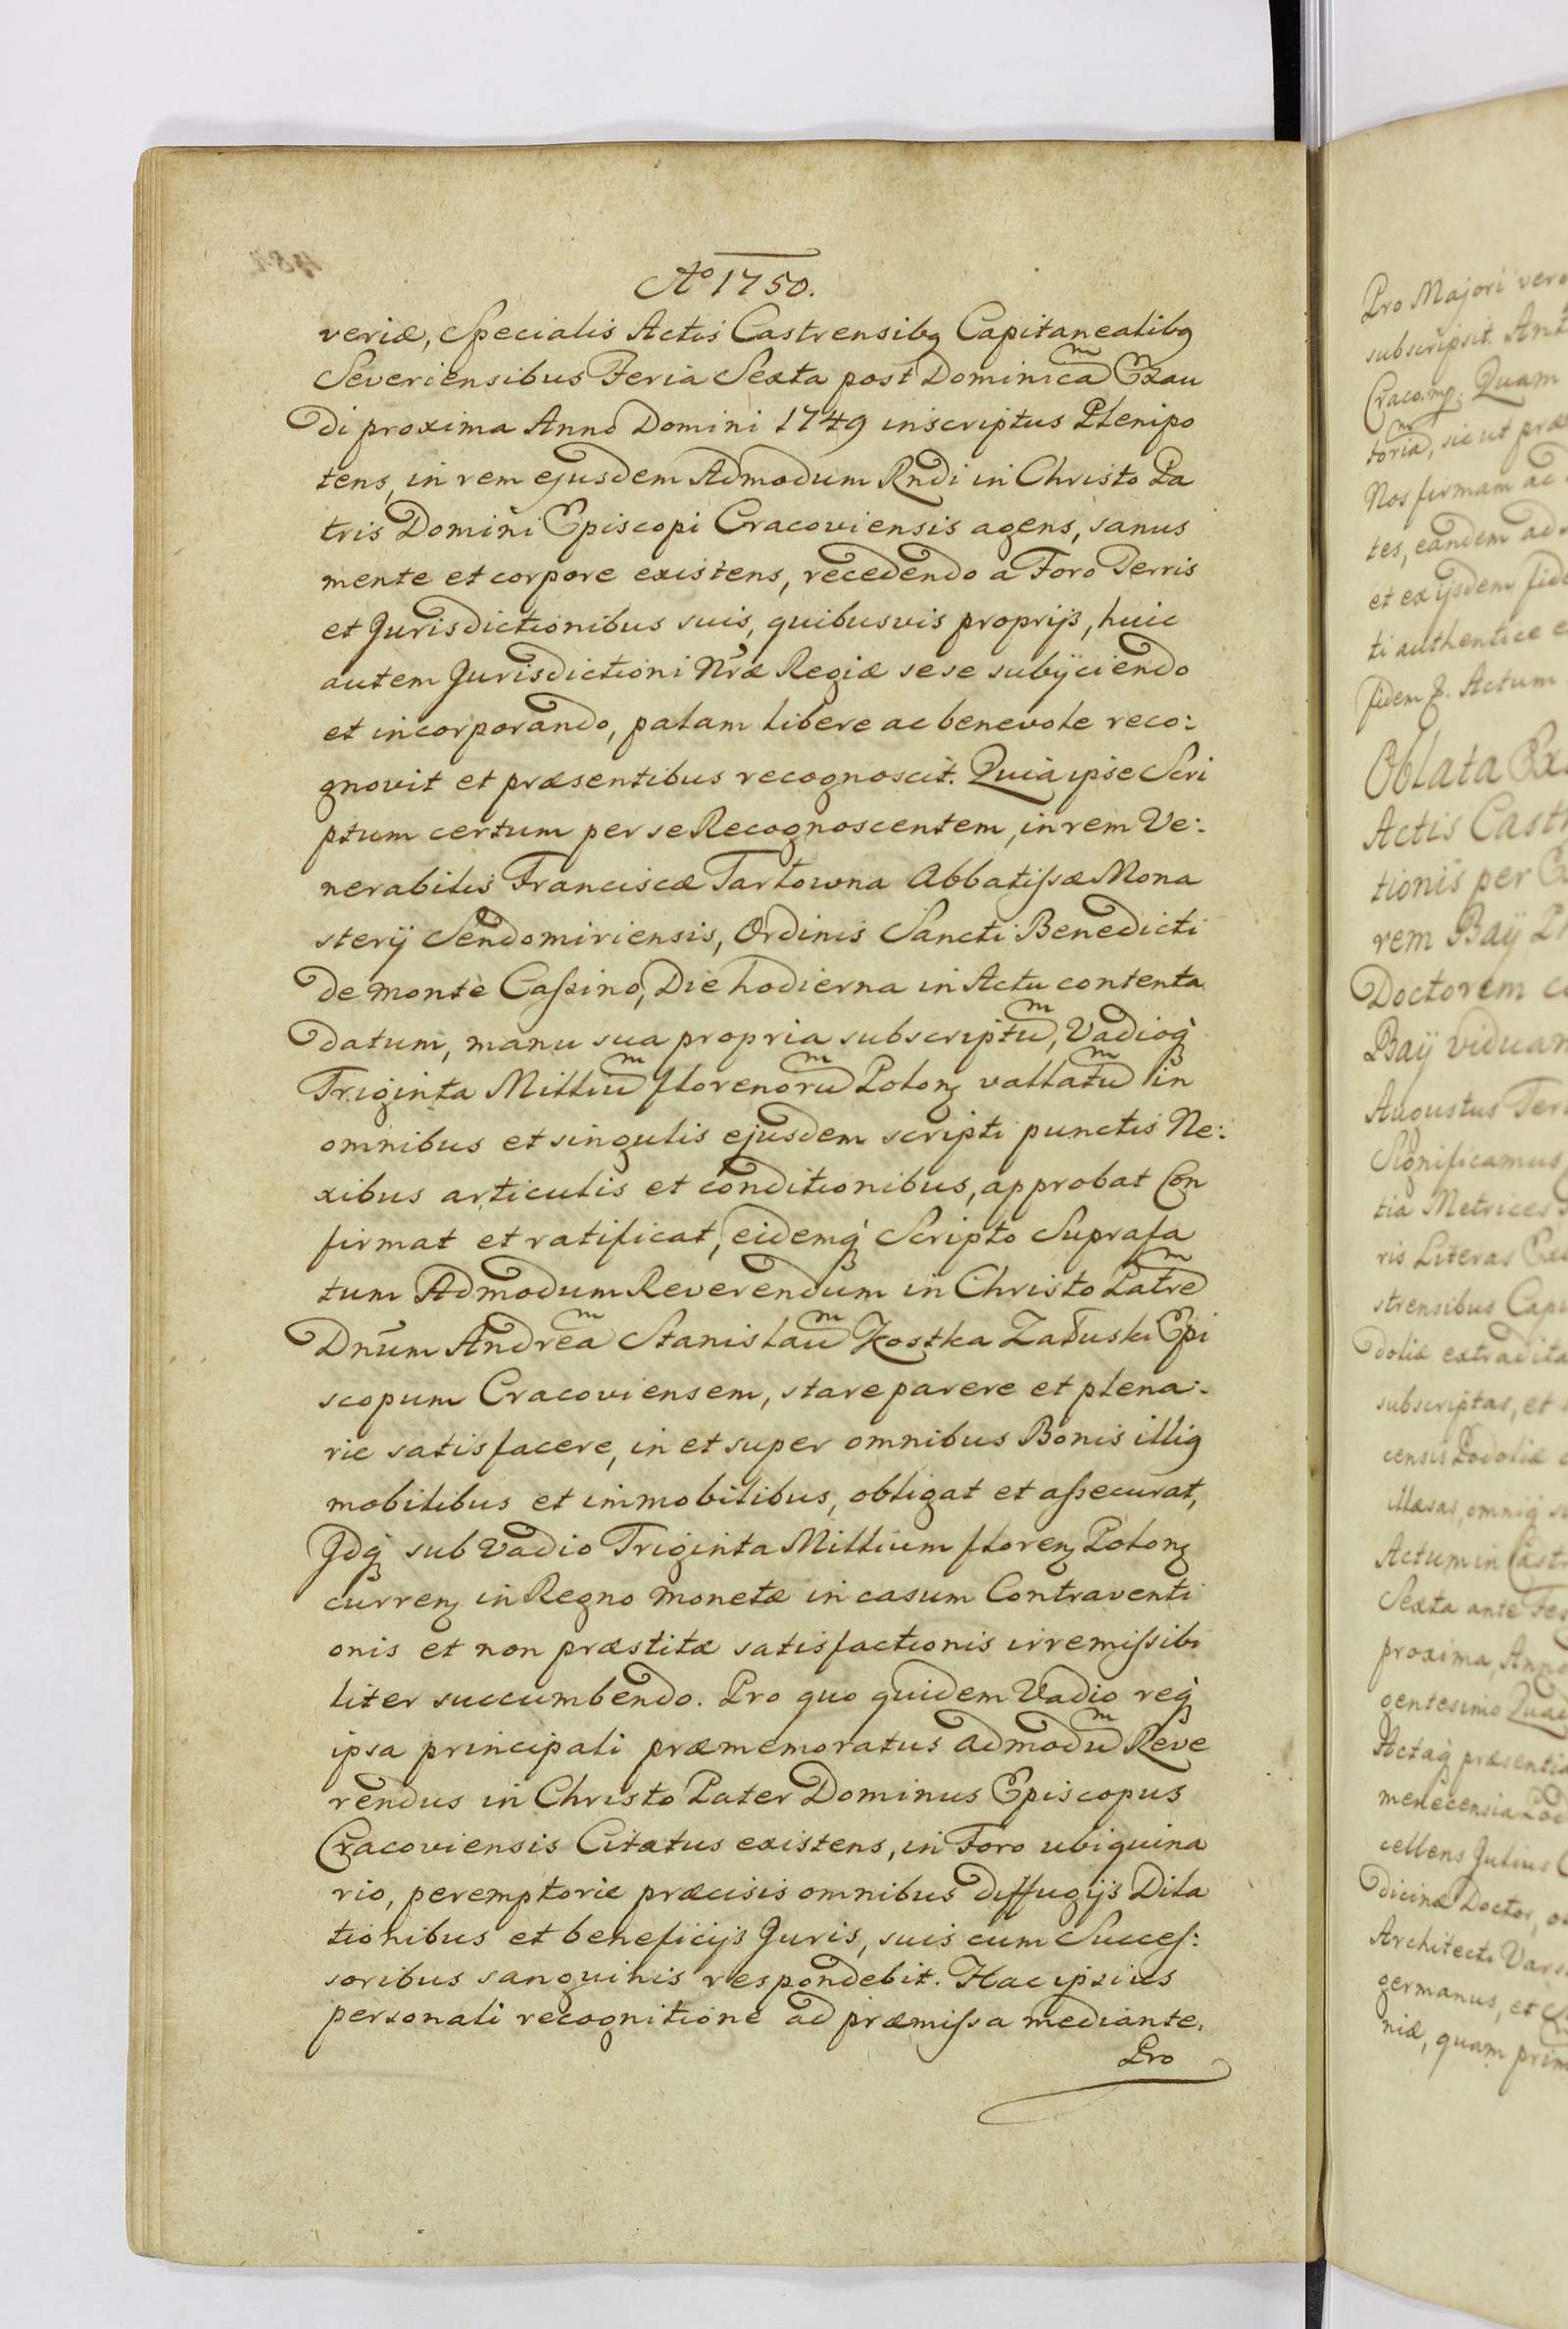 Aº 1750.
veriæ, Specialis Actis Castrensibq Capitanealibq
Severiensibus Feria Sexta post Dominicam Exau
di proxima Anno Domini 1749 inscriptus Plenipo
tens, in rem ejusdem Admodum Rndi in Christo Pa
tris Domini Episcopi Cracoviensis agens, sanus
mente et corpore existens, recedendo a Foro Terris
et Jurisdictionibus suis, quibusvis proprijs, huic
autem Jurisdictioni Nræ Regiæ sese subijciendo
et incorporando, palam libere ac benevole reco:
gnovit et præsentibus recognoscit. Quia ipse Scri
ptum certum per se Recognoscentem, in rem Ve:
nerabilis Franciscæ Tarłowna Abbatissæ Mona
sterij Sendomiriensis, Ordinis Sancti Benedicti
de monte Cassino, Die hodierna in Actu contenta
datum, manu sua propria subscriptum, Vadioq
Triginta Millium florenorum Polonz vallatum in
omnibus et singulis ejusdem scripti punctis Ne:
xibus articulis et conditionibus, approbat Con
firmat et ratificat, eidemq Scripto Suprafa
tum Admodum Reverendum in Christo Patrem
Dnum Andream Stanislaum Kostka Załuski Epi
scopum Cracoviensem, stare parere et plena:
rie satisfacere, in et super omnibus Bonis illiq
mobilibus et immobilibus, obligat et assecurat,
Idq sub Vadio Triginta Millium florenz Polonz
currenz in Regno monetæ in casum Contraventi
onis et non præstitæ satisfactionis irremissibi
liter succumbendo. Pro quo quidem Vadio req
ipsa principali præmemoratus admodum Reve
rendus in Christo Pater Dominus Episcopus
Cracoviensis Citatus existens, in Foro ubiquina
rio, peremptorie præcisis omnibus diffugijs Dila
tionibus et beneficijs Juris, suis cum Succes:
soribus sanguinis respondebit. Hac ipsius
personali recognitione ad præmissa mediante.
Pro
Pro Majori vero
subscripsit.
Quam
toriam, sic ut
Nos firmam ac
tes, eandem
et ex ijsdem
ti authentice
fidem Actum
Oblata
Actis
tionis per
rem Baij
Doctorem
Baij viduam
Augustus
Significamus
tia Metrices
ris Literas
strensibus
doliæ
subscriptas, et
censis Podoliæ
illæsas, omniq
Actum in
Sexta ante
proxima, Anno
gentesimo
Actaq
cellens Julius
dicinæ Doctor,
Architecti
germanus, et
niæ, quam